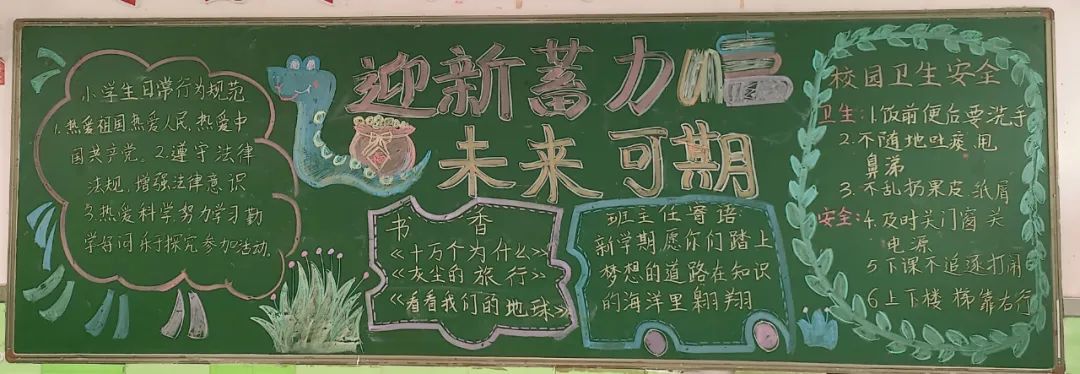 迎新蓄力
未来可期
小学生日常行为规范
1.热爱祖国热爱人民,热爱中
国共产党。2.遵守法律
法规,增强法律意识
3.热爱科学努力学习勤
学好问乐于探究参加活动.
书香
《十万个为什么》
《灰尘的旅行》
《看看我们的地球》
班主任寄语
新学期愿你们踏上
梦想的道路在知识
的海洋里翱翔
校园卫生安全
卫生:1.饭前便后要洗手
2.不随地吐痰.甩
鼻涕
3.不乱扔果皮纸屑
安全:4.及时关门窗关
电源
5下课不追逐打闹
6上下楼梯靠右行